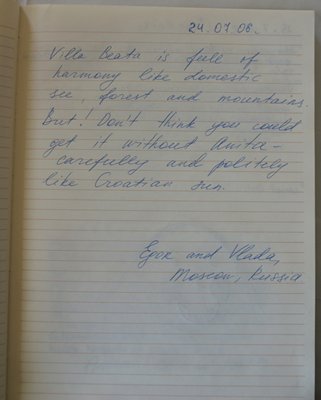 24.07.06.
Villa Beata is full of
harmony like domestic
see, forest and mountains.
But! Don't think you could
get it without Anita -
carefully and politely
like Croatian sun.
Egor and Vlada,
Moscow, Russia